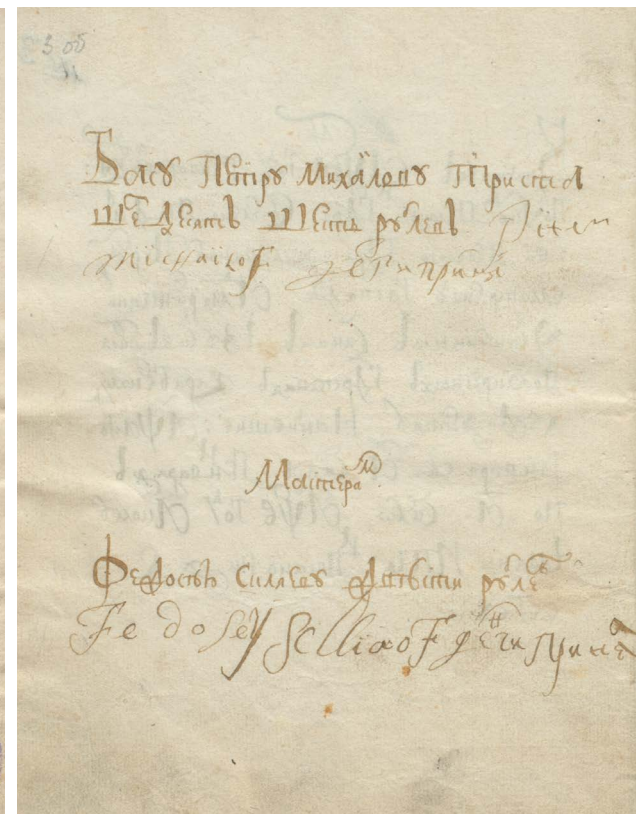 3 об
Басу Петру Михаилову Триста
шедесятъ шесть рублевъ Piter
Michailof денги принял
Мастерам
Федосѣю Силяеву двѣсти рублев
Fedosey Scliaof денги принял